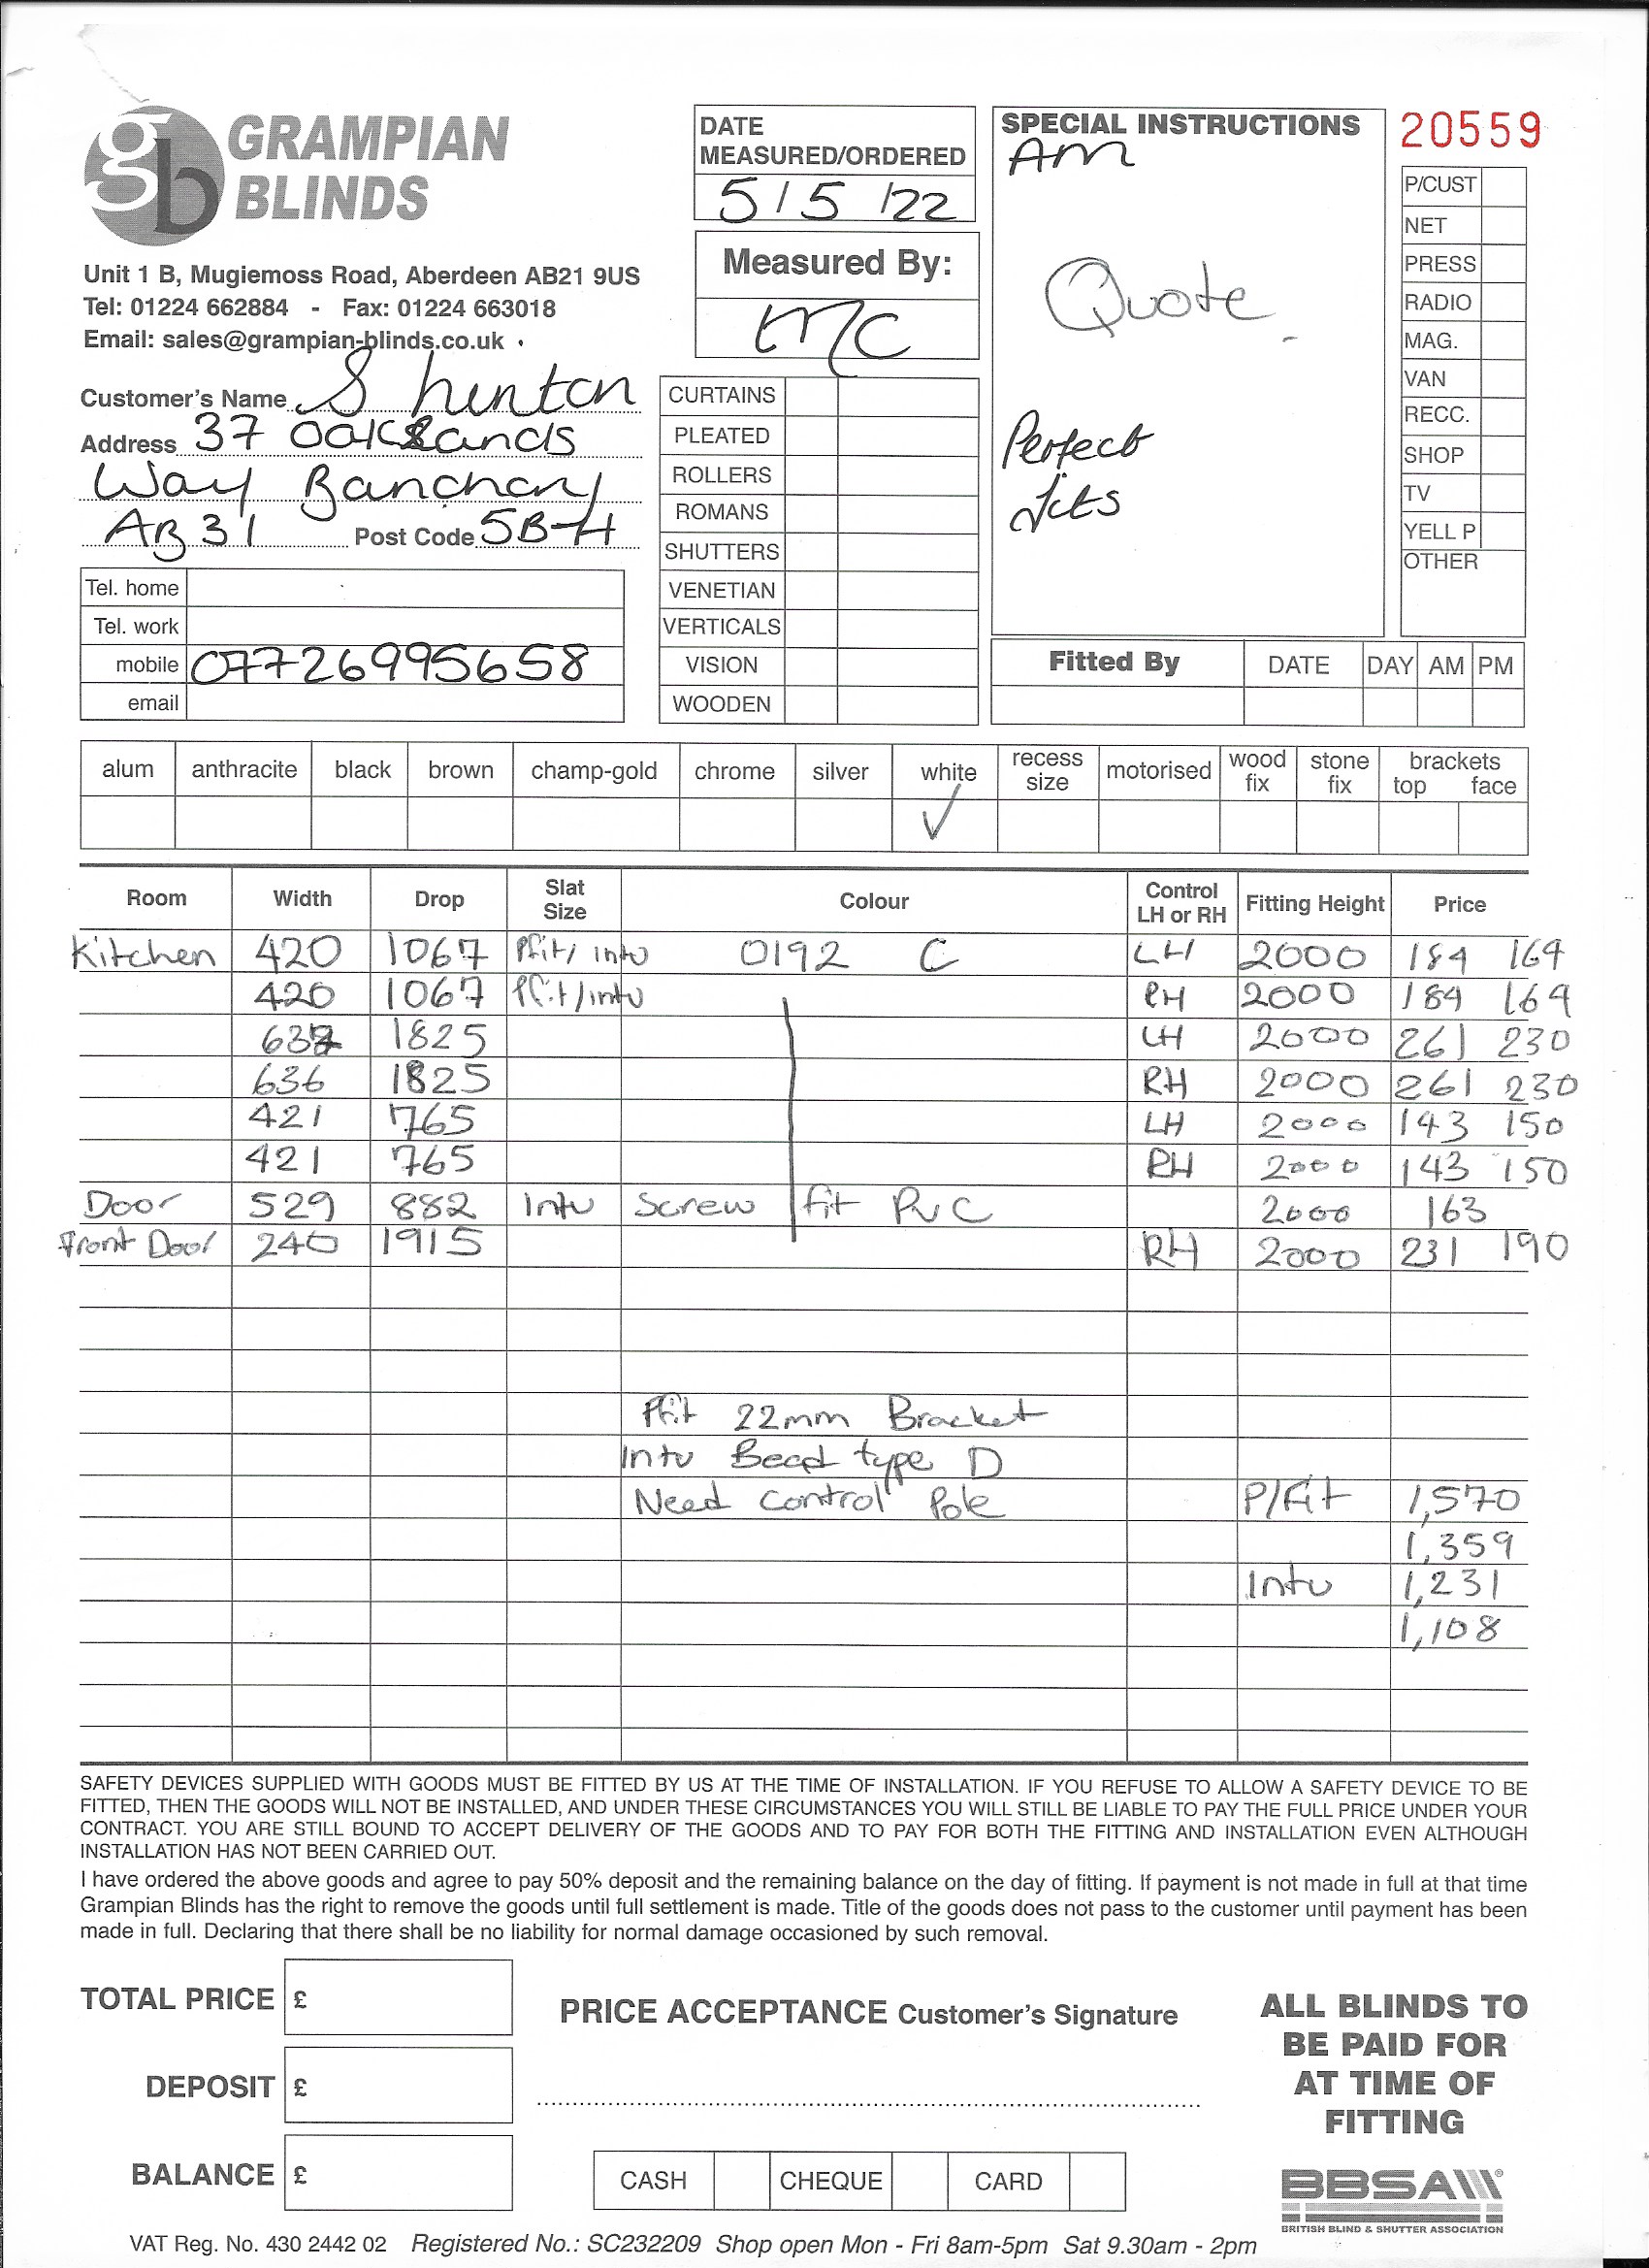 GRAMPIAN
BLINDS
gb
Unit 1 B, Mugiemoss Road, Aberdeen AB21 9US
Tel: 01224 662884 - Fax: 01224 663018
Email: sales@grampian-blinds.co.uk
DATE
MEASURED/ORDERED
5/5/22
Measured By:
MC
SPECIAL INSTRUCTIONS
AM
Quote
Perfect
fits
20559
P/CUST
NET
PRESS
RADIO
MAG.
VAN
RECC.
SHOP
TV
YELL P
OTHER
Customer's Name S hunton
Address 37 Oaklands
Way Banchory
AB31 Post Code 5B-H
Tel. home
Tel. work
mobile 07726995658
email
CURTAINS
PLEATED
ROLLERS
ROMANS
SHUTTERS
VENETIAN
VERTICALS
VISION
WOODEN
Fitted By DATE DAY AM PM
alum anthracite black brown champ-gold chrome silver white recess size motorised wood fix stone fix brackets top face
Room Width Drop Slat Size Colour Control LH or RH Fitting Height Price
Kitchen 420 1067 Pfit/ intu 0192 C LH 2000 184 164
420 1067 Pfit/intu RH 2000 184 164
1825 LH 2000 261 230
636 1825 RH 2000 261 230
421 765 LH 2000 143 150
421 765 RH 2000 143 150
Door 529 882 Intu Screw fit PVC 2000 163
Front Door 240 1915 RH 2000 231 190
Pfit 22mm Bracket
Intu Bead type D
Need control Pole P/Fit 1,570
1,359
Intu 1,231
1,108
SAFETY DEVICES SUPPLIED WITH GOODS MUST BE FITTED BY US AT THE TIME OF INSTALLATION. IF YOU REFUSE TO ALLOW A SAFETY DEVICE TO BE
FITTED, THEN THE GOODS WILL NOT BE INSTALLED, AND UNDER THESE CIRCUMSTANCES YOU WILL STILL BE LIABLE TO PAY THE FULL PRICE UNDER YOUR
CONTRACT. YOU ARE STILL BOUND TO ACCEPT DELIVERY OF THE GOODS AND TO PAY FOR BOTH THE FITTING AND INSTALLATION EVEN ALTHOUGH
INSTALLATION HAS NOT BEEN CARRIED OUT.
I have ordered the above goods and agree to pay 50% deposit and the remaining balance on the day of fitting. If payment is not made in full at that time
Grampian Blinds has the right to remove the goods until full settlement is made. Title of the goods does not pass to the customer until payment has been
made in full. Declaring that there shall be no liability for normal damage occasioned by such removal.
TOTAL PRICE £
DEPOSIT £
BALANCE £
PRICE ACCEPTANCE Customer's Signature
CASH CHEQUE CARD
ALL BLINDS TO
BE PAID FOR
AT TIME OF
FITTING
BBSA
BRITISH BLIND & SHUTTER ASSOCIATION
VAT Reg. No. 430 2442 02 Registered No.: SC232209 Shop open Mon - Fri 8am-5pm Sat 9.30am - 2pm